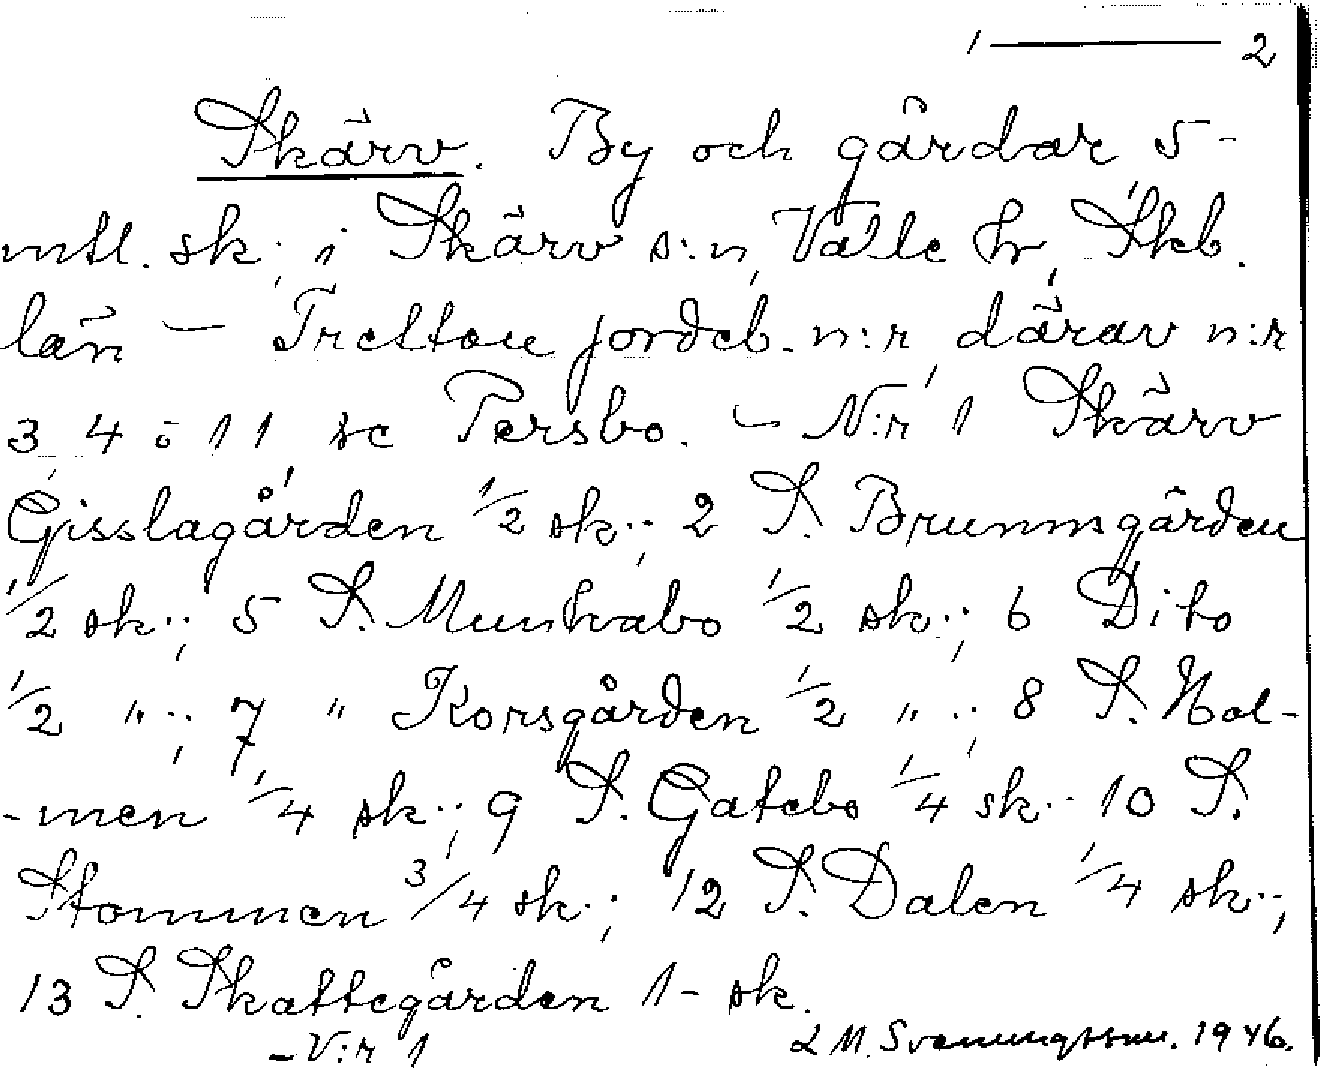 1 — 2
Skärv. By och gårdar 5-
mtl. sk., i Skärv s:n, Valle hr, Skb.
län — Tretton jordeb. n:r, därav n:r
3, 4 o 11 se Persbo. — N:r 1 Skärv
Gisslagården 1/2 sk.; 2 S. Brunnsgården
1/2 sk.; 5 S. Munkabo 1/2 sk.; 6 Dito
1/2 ".; 7 " Korsgården 1/2 ".; 8 S. Hol-
-men 1/4 sk.; 9 S. Gatebo 1/4 sk.. 10 S.
Stommen 3/4 sk.; 12 S. Dalen 1/4 sk.;
13 S. Skattegården 1- sk.
— N:r 1
L M. Svenungsson. 1946.